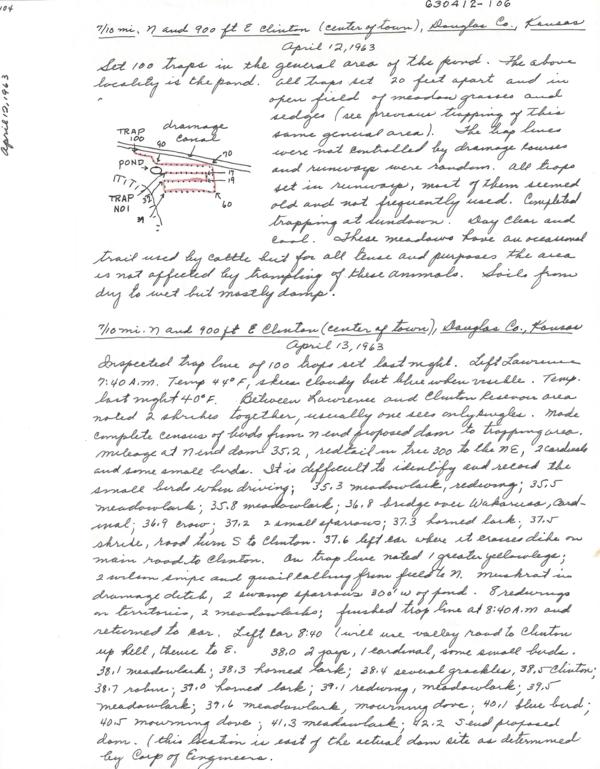 104
630412-106
April 12, 1963
7/10 mi. N and 900 ft E Clinton (center of town), Douglas Co., Kansas
April 12, 1963
Set 100 traps in the general area of the pond. The above
locality is the pond. All traps set 20 feet apart and in
open field of meadow grasses and
sedges (see previous trapping of this
same general area). The trap lines
were not controlled by drainage courses
and runways were random. All traps
set in runways, most of them seemed
old and not frequently used. Completed
trapping at sundown. Day clear and
cool. These meadows have an occasional
TRAP
100
drainage
canal
90
70
POND
17
19
TRAP
NO 1
32
39
60
trail used by cattle but for all tense and purposes the area
is not affected by trampling of these animals. Soils from
dry to wet but mostly damp.
7/10 mi. N and 900 ft E Clinton (center of town), Douglas Co., Kansas
April 13, 1963
Inspected trap line of 100 traps set last night. Left Lawrence
7:40 A.M. Temp 44°F, skies cloudy but blue when visible. Temp.
last night 40°F. Between Lawrence and Clinton Resevoir area
noted 2 shrikes together, usually one sees only singles. Made
complete census of birds from N end proposed dam to trapping area.
mileage at N end dam 35.2, redtail in tree 300 to the NE, 2 cardinals
and some small birds. It is difficult to identify and record the
small birds when driving; 35.3 meadowlark, redwing; 35.5
meadowlark; 35.8 meadowlark; 36.8 bridge over Wakarusa, card-
inal; 36.9 crow; 37.2 2 small sparrows; 37.3 horned lark; 37.5
shrike, road turn S to Clinton. 37.6 left car where it crosses dike on
main road to Clinton. On trap line noted 1 greater yellowlegs;
2 wilson snipe and quail calling from field to N. Muskrat in
drainage ditch, 2 swamp sparrows 300' W of pond. 8 redwings
on territories, 2 meadowlarks; finished trap line at 8:40 A.M and
returned to car. Left car 8:40 (will use valley road to Clinton
up hill, thence to E. 38.0 2 jays, 1 cardinal, some small birds.
38.1 meadowlark; 38.3 horned lark; 38.4 several grackles, 38.5 Clinton;
38.7 robin; 39.0 horned lark; 39.1 redwing, meadowlark; 39.5
meadowlark; 39.6 meadowlark, mourning dove; 40.1 blue bird;
40.5 mourning dove; 41.3 meadowlark; 42.2 S end proposed
dam. (this location is east of the actual dam site as determined
by Corp of Engineers.